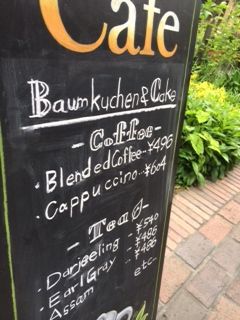 Cafe
Baumkuchen & Cake
- Coffee -
・Blended Coffee...¥496
・Cappuccino...¥604
- Tea -
・Darjeeling...¥540
・Earl Gray...¥486
・Assam...¥486
etc...